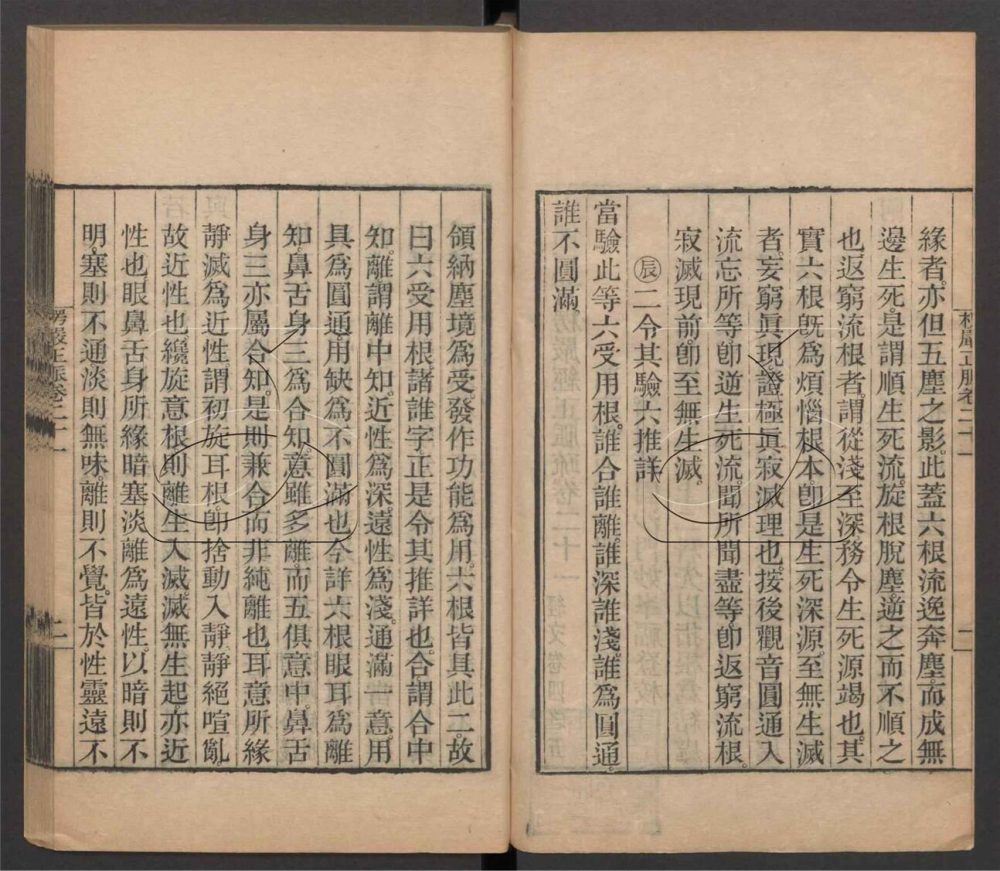 楞嚴正脈卷二十一
二
緣者。亦但五塵之影。此蓋六根流逸奔塵。而成無
邊生死。是謂順生死流。旋根脫塵。逆之而不順之
也。返窮流根者。謂從淺至深。務令生死源竭也。其
實六根旣爲煩惱根本。卽是生死深源。至無生滅
者。妄窮眞現。證極眞寂滅理也。按後觀音圓通入
流忘所等。卽逆生死流。聞所聞盡等。卽返窮流根。
寂滅現前。卽至無生滅。
㊋辰二令其驗六推詳
當驗此等六受用根。誰合誰離。誰深誰淺。誰爲圓通。
誰不圓滿。
領納塵境爲受。發作功能爲用。六根皆具此二。故
曰六受用根。諸誰字正是令其推詳也。合謂合中
知。離謂離中知。近性爲深。遠性爲淺。通滿一意。用
具爲圓通。用缺爲不圓滿也。今詳六根。眼耳爲離
知。鼻舌身三爲合知。意雖多離。而五俱意中。鼻舌
身三。亦屬合知。是則兼合。而非純離也。耳意所緣
靜滅爲近性。謂初旋耳根。卽捨動入靜。靜絕喧亂。
故近性也。纔旋意根。則離生入滅。滅無生起。亦近
性也。眼鼻舌身所緣暗塞淡離爲遠性。以暗則不
明。塞則不通。淡則無味。離則不覺。皆於性靈遠不
楞嚴正脈卷二十一
二